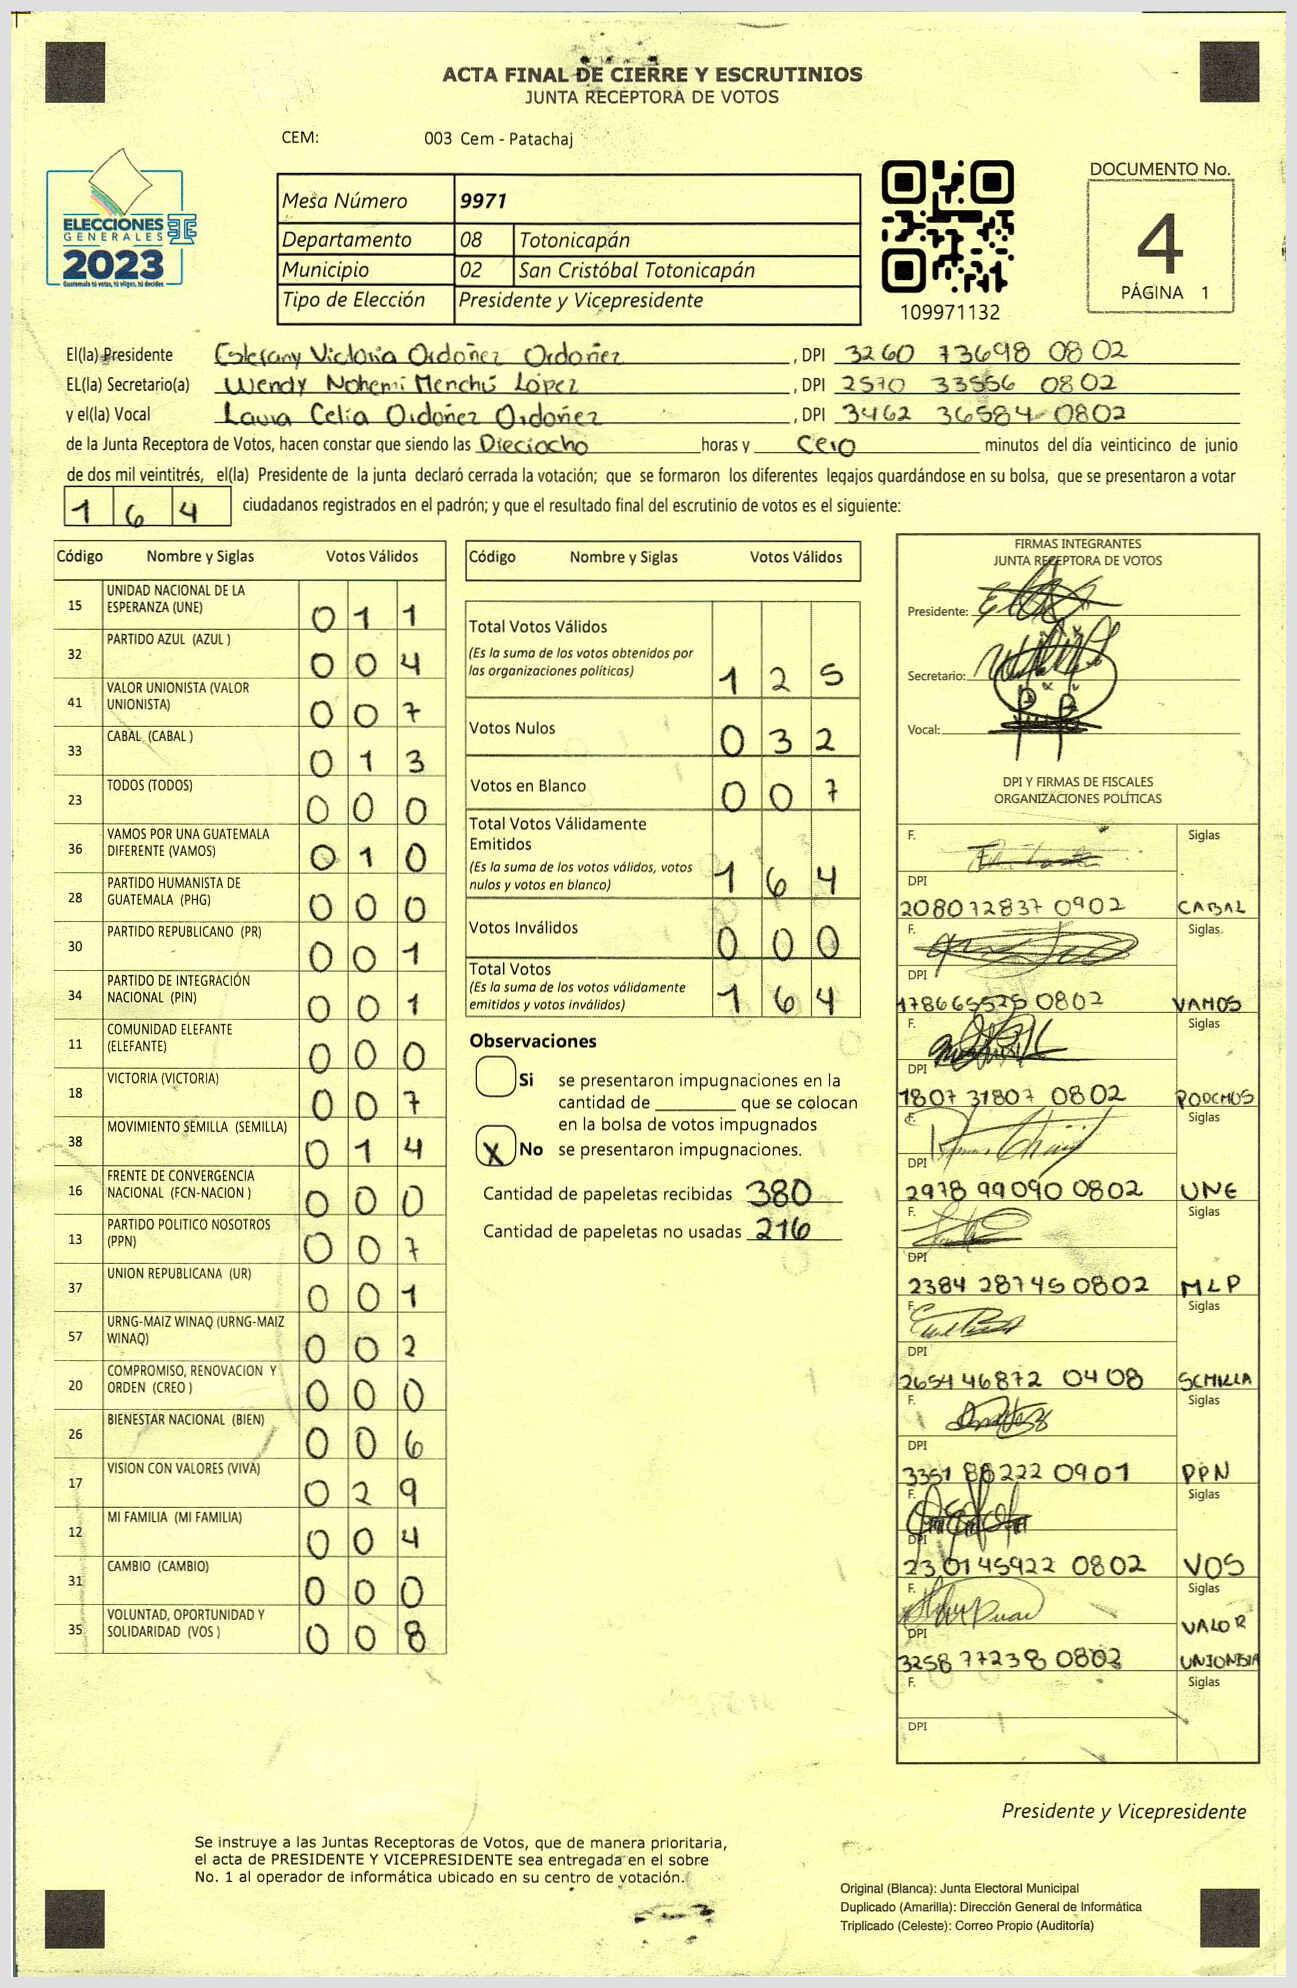 ACTA FINAL DE CIERRE Y ESCRUTINIOS
JUNTA RECEPTORA DE VOTOS
CEM: 003 Cem - Patachaj
ELECCIONES
GENERALES
2023
Guatemala tú votas, tú eliges, tú decides
Mesa Número 9971
Departamento 08 Totonicapán
Municipio 02 San Cristóbal Totonicapán
Tipo de Elección Presidente y Vicepresidente
109971132
DOCUMENTO No.
4
PÁGINA 1
El(la) Presidente Estefany Victoria Ordoñez Ordoñez, DPI 3260 73698 0802
EL(la) Secretario(a) Wendy Nohemí Menchú López, DPI 2570 33556 0802
y el(la) Vocal Laura Celia Ordoñez Ordoñez, DPI 3462 36584 0802
de la Junta Receptora de Votos, hacen constar que siendo las Dieciocho horas y Cero minutos del día veinticinco de junio
de dos mil veintitrés, el(la) Presidente de la junta declaró cerrada la votación; que se formaron los diferentes legajos guardándose en su bolsa, que se presentaron a votar
164 ciudadanos registrados en el padrón; y que el resultado final del escrutinio de votos es el siguiente:
Código Nombre y Siglas Votos Válidos
15 UNIDAD NACIONAL DE LA
ESPERANZA (UNE) 011
32 PARTIDO AZUL (AZUL ) 004
41 VALOR UNIONISTA (VALOR
UNIONISTA) 007
33 CABAL (CABAL ) 013
23 TODOS (TODOS) 000
36 VAMOS POR UNA GUATEMALA
DIFERENTE (VAMOS) 010
28 PARTIDO HUMANISTA DE
GUATEMALA (PHG) 000
30 PARTIDO REPUBLICANO (PR) 001
34 PARTIDO DE INTEGRACIÓN
NACIONAL (PIN) 001
11 COMUNIDAD ELEFANTE
(ELEFANTE) 000
18 VICTORIA (VICTORIA) 007
38 MOVIMIENTO SEMILLA (SEMILLA) 014
16 FRENTE DE CONVERGENCIA
NACIONAL (FCN-NACION ) 000
13 PARTIDO POLITICO NOSOTROS
(PPN) 007
37 UNION REPUBLICANA (UR) 001
57 URNG-MAIZ WINAQ (URNG-MAIZ
WINAQ) 002
20 COMPROMISO, RENOVACION Y
ORDEN (CREO ) 000
26 BIENESTAR NACIONAL (BIEN) 006
17 VISION CON VALORES (VIVA) 029
12 MI FAMILIA (MI FAMILIA) 004
31 CAMBIO (CAMBIO) 000
35 VOLUNTAD, OPORTUNIDAD Y
SOLIDARIDAD (VOS ) 008
Código Nombre y Siglas Votos Válidos
Total Votos Válidos
(Es la suma de los votos obtenidos por
las organizaciones políticas) 125
Votos Nulos 032
Votos en Blanco 007
Total Votos Válidamente
Emitidos
(Es la suma de los votos válidos, votos
nulos y votos en blanco) 164
Votos Inválidos 000
Total Votos
(Es la suma de los votos válidamente
emitidos y votos inválidos) 164
Observaciones
Si se presentaron impugnaciones en la
cantidad de ________ que se colocan
en la bolsa de votos impugnados
X No se presentaron impugnaciones.
Cantidad de papeletas recibidas 380
Cantidad de papeletas no usadas 216
FIRMAS INTEGRANTES
JUNTA RECEPTORA DE VOTOS
Presidente:
Secretario:
Vocal:
DPI Y FIRMAS DE FISCALES
ORGANIZACIONES POLÍTICAS
F. Siglas
DPI
208072837 0902 CABAL
F. Siglas
DPI
178665525 0802 VAMOS
F. Siglas
DPI
1807 31807 0802 PODEMOS
F. Siglas
DPI
2978 99090 0802 UNE
F. Siglas
DPI
2384 28745 0802 MLP
F. Siglas
DPI
2654 46872 0408 SEMILLA
F. Siglas
DPI
3351 88222 0901 PPN
F. Siglas
DPI
230145922 0802 VOS
F. Siglas
DPI VALOR
3258 77238 0802 UNIONISTA
F. Siglas
DPI
Presidente y Vicepresidente
Se instruye a las Juntas Receptoras de Votos, que de manera prioritaria,
el acta de PRESIDENTE Y VICEPRESIDENTE sea entregada en el sobre
No. 1 al operador de informática ubicado en su centro de votación.
Original (Blanca): Junta Electoral Municipal
Duplicado (Amarilla): Dirección General de Informática
Triplicado (Celeste): Correo Propio (Auditoría)